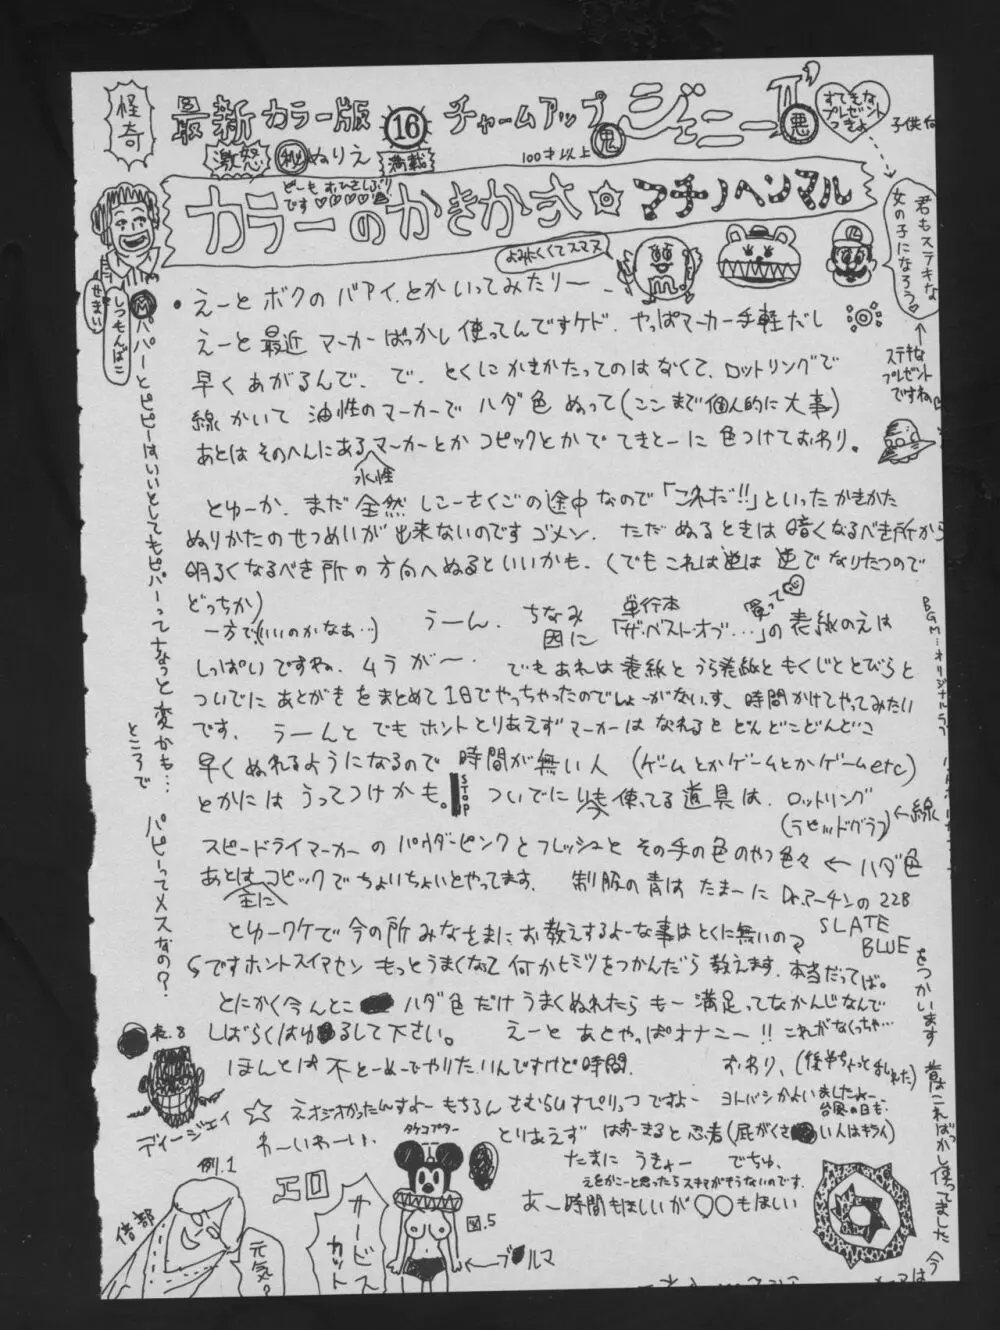 怪奇
最新カラー版 16 チャームアップ ジェニー
激怒 秘 ぬりえ 満載
100才以上 鬼 悪
すてきな
プレゼント
つきよ
どーも おひさしぶり
です♡♡♡♡
カラーのかきかた マチノヘンマル
よみにくくてスマヌ
君もステキな
女の子になろう♡
ステキな
プレゼント
ですね
しつもんばこ
せまい
パパーとピピーはいいとしてもピパーってなっと変かも…
ところで
パピーってメスなの?
・えーと ボクの バアイ、とか いってみたりー
えーと 最近 マーカーばっかし 使ってんですケド、やっぱマーカー手軽だし
早く あがるんで、で、とくに かきかたってのは なくて、ロットリングで
線 かいて 油性のマーカーで ハダ色 ぬって(ここまで個人的に大事)
あとは そのへんにあるマーカーとか コピックとかで てきとーに 色つけておわり。
水性
とゆーか、まだ 全然 しこーさくごの途中なので「これだ!!」といった かきかた
ぬりかたの せつめいが 出来ないのです ゴメン、ただ ぬる ときは 暗くなるべき所から
明るくなるべき 所 の 方向へぬるといいかも、(でも これは逆は 逆で なりたつので
どっちか)
一方で(いいのかなあ…)
うーん、ちなみ
因に
単行本
「ザ・ベスト・オブ…」の 表紙のえは
買って♡
しっぱいですね、ムラが〜、でもあれは表紙と うら表紙と もくじと とびらと
ついでに あとがき を まとめて 1日でやっちゃったのでしょーがないっす、時間かけてやってみたい
です、うーんと でも ホント とりあえず マーカーは なれると どんどこどんどこ
早く ぬれるようになるので 時間が 無い人 (ゲームとかゲームとかゲームetc)
とかには うってつけかも。STOP ついでに 使ってる 道具は、ロットリング
(ラピッドグラフ)←線
スピードライマーカーの パウダーピンクと フレッシュと その手の色のやつ色々 ← ハダ色
あとは コピックで ちょいちょいとやってます、制服の青は たまーに Dr.アーチンの 228
主に
SLATE
BLUE
をつかいます
とゆーワケで 今の所 みなさまに お教えするよーな事は とくに無いので
ですホントスイマセン もっとうまくなって 何かヒミツをつかんだら 教えます、本当だってば。
とにかく今んとこ ハダ色 だけ うまくぬれたら もー 満足ってなかんじなんで
しばらくは ゆるして下さい。えーと あと やっぱオナニー!! これがなくっちゃ…
ほんとは 不とーめーでやりたいんですけど 時間、おわり、
ディージェイ
☆ ネオジオかったんすよー もちろん さむらいすぴりっつ ですよー ヨドバシかよいましたよー、
台風の日も、
わーいわーい、
とりあえず はおーまると 忍者(屁がくさい人はキライ)
たまに うきょー でちゅ、
えをかこーと思ったら スキマがそうないのです、
あー 時間もほしいが 〇〇もほしい
昔はこればっかし使ってました 今
例.1
元気?
エロ
サービス
カット
タケコプター
図.5
ブルマ